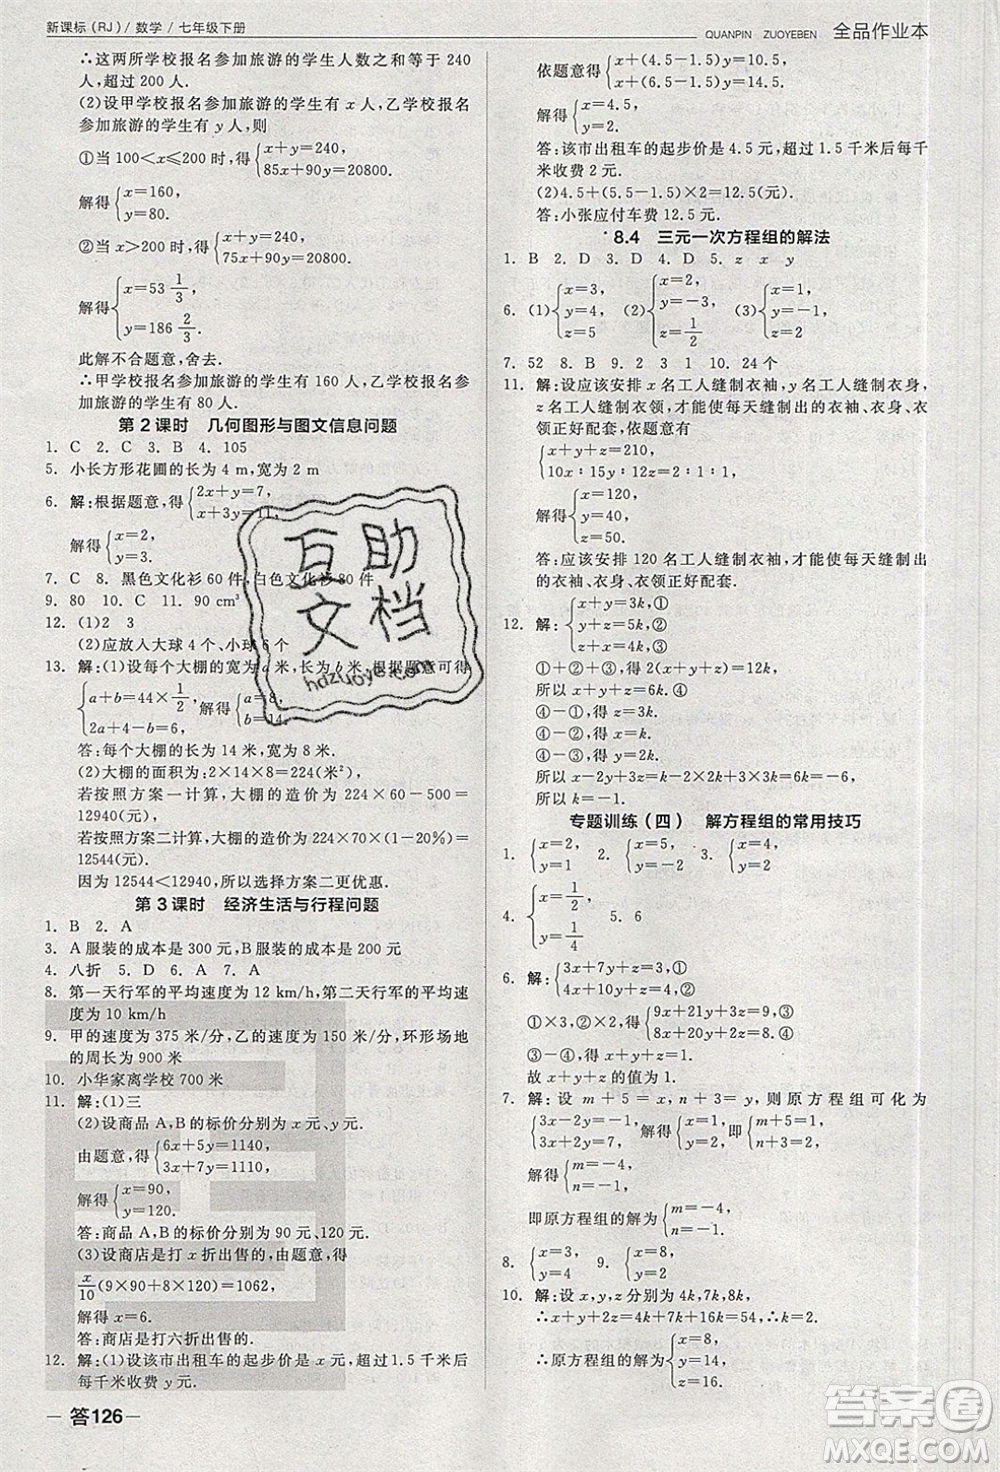 新课标(RJ)/数学/七年级下册
QUANPIN ZUOYEBEN 全品作业本
∴这两所学校报名参加旅游的学生人数之和等于 240
人,超过 200 人.
(2)设甲学校报名参加旅游的学生有 x 人,乙学校报名
参加旅游的学生有 y 人,则
①当 100<x≤200 时,得{x+y=240,
85x+90y=20800.
解得{x=160,
y=80.
②当 x>200 时,得{x+y=240,
75x+90y=20800.
解得{x=53 1/3,
y=186 2/3.
此解不合题意,舍去.
∴甲学校报名参加旅游的学生有 160 人,乙学校报名参
加旅游的学生有 80 人.
第 2 课时 几何图形与图文信息问题
1. C 2. C 3. B 4. 105
5. 小长方形花圃的长为 4 m,宽为 2 m
6. 解:根据题意,得{2x+y=7,
x+3y=11,
解得{x=2,
y=3.
7. C 8. 黑色文化衫 60 件,白色文化衫 80 件
9. 80 10. C 11. 90 cm³
12. (1)2 3
(2)应放人大球 4 个、小球 6 个
13. 解:(1)设每个大棚的宽为 a 米,长为 b 米,根据题意可得
{a+b=44×1/2,
2a+4-b=6,
解得{a=8,
b=14.
答:每个大棚的长为 14 米,宽为 8 米.
(2)大棚的面积为:2×14×8=224(米²),
若按照方案一计算,大棚的造价为 224×60-500=
12940(元),
若按照方案二计算,大棚的造价为 224×70×(1-20%)=
12544(元).
因为 12544<12940,所以选择方案二更优惠.
第 3 课时 经济生活与行程问题
1. B 2. A
3. A服装的成本是 300 元,B服装的成本是 200 元
4. 八折 5. D 6. A 7. A
8. 第一天行军的平均速度为 12 km/h,第二天行军的平均速
度为 10 km/h
9. 甲的速度为 375 米/分,乙的速度为 150 米/分,环形场地
的周长为 900 米
10. 小华家离学校 700 米
11. 解:(1)三
(2)设商品 A,B 的标价分别为 x 元、y 元.
由题意,得{6x+5y=1140,
3x+7y=1110,
解得{x=90,
y=120.
答:商品 A,B 的标价分别为 90 元、120 元.
(3)设商店是打 x 折出售的,根据题意,得
x/10(9×90+8×120)=1062,
解得 x=6.
答:商店是打六折出售的.
12. 解:(1)设该市出租车的起步价是 x 元,超过 1.5 千米后
每千米收费 y 元.
依题意得{x+(4.5-1.5)y=10.5,
x+(6.5-1.5)y=14.5,
解得{x=4.5,
y=2.
答:该市出租车的起步价是 4.5 元,超过 1.5 千米后每千
米收费 2 元.
(2)4.5+(5.5-1.5)×2=12.5(元).
答:小张应付车费 12.5 元.
*8.4 三元一次方程组的解法
1. B 2. D 3. D 4. D 5. z x y
6. (1){x=3,
y=4,
z=5
(2){x=4,
y=-3,
z=1/2
(3){x=1,
y=-1,
z=2
7. 52 8. B 9. 2 3 1 10. 24 个
11. 解:设应该安排 x 名工人缝制衣袖,y 名工人缝制衣身,
z 名工人缝制衣领,才能使每天缝制出的衣袖、衣身、衣
领正好配套.依题意有
{x+y+z=210,
10x:15y:12z=2:1:1,
解得{x=120,
y=40,
z=50.
答:应该安排 120 名工人缝制衣袖,才能使每天缝制出
的衣袖、衣身、衣领正好配套.
12. 解:{x+y=3k,①
y+z=5k,②
z+x=4k,③
①+②+③,得 2(x+y+z)=12k.
所以 x+y+z=6k.④
④-①,得 z=3k.
④-②,得 x=k.
④-③,得 y=2k.
所以 x-2y+3z=k-4k+9k=-6,
所以 k=-1.
专题训练(四) 解方程组的常用技巧
1. {x=2,
y=1
2. {x=5,
y=-2
3. {x=4,
y=2
4. {x=1/2,
y=1/4
5. 6
6. 解:{3x+7y+z=3,①
4x+10y+z=4.②
①×3,②×2,得{9x+21y+3z=9,③
8x+20y+2z=8.④
③-④,得 x+y+z=1.
故 x+y+z 的值为 1.
7. 解:设 m+5=x,n+3=y,则原方程组可化为
即{m+5=1,
n+3=2,
解得{m=-4,
n=-1,
即原方程组的解为{m=-4,
n=-1.
10. 解:设 x,y,z 分别为 4k,7k,8k,
∴x+y+z=4k+7k+16k
∴原方程组的解为{x=8,
y=14,
z=16.
答126
互助文档
hdzuoye.com
答案圈
MXQE.COM